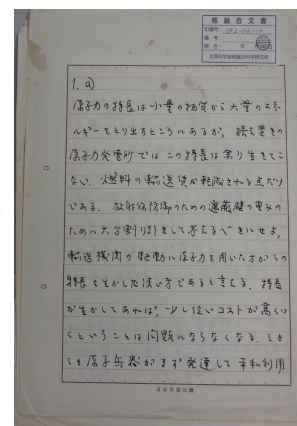 核融合文書
ID番号:
備考:
照合: 年
文部科学省核融合科学研究所
1. a)
原子力の特長は小量の物質から大量のエネ
ルギーをとり出すところにあるが、据え置きの
原子力発電所ではこの特長は余り生きてこ
ない。燃料の輸送使が軽減される点だけ
である。放射能防御のための遮蔽壁の重みの
ために大分割り引きして考えるべきにせよ,
輸送機関の駆動に原子力を用いた方がその
特長を生かした使い方であると言える。特長
が生かしてあれば,少し位いコストが高くつ
くということは問題にならなくなる。
も原子兵器がまず発達して平和利用
日本学術会議